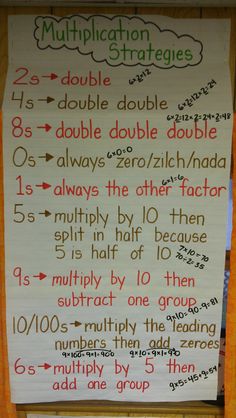 Multiplication
Strategies
2s→double
6x2=12
4s→double double
6x2=12x2=24
8s→double double double
6x2=12x2=24x2=48
0s→always zero/zilch/nada
6x0=0
1s→always the other factor
6x1=6
5s→multiply by 10 then
split in half because
5 is half of 10
7x10=70
70÷2=35
9s→multiply by 10 then
subtract one group
9x10=90-9=81
10/100s→multiply the leading
numbers then add zeroes
9x100=9x1=900
9x10=9x1=90
6s→multiply by 5 then
add one group
9x5=45+9=54